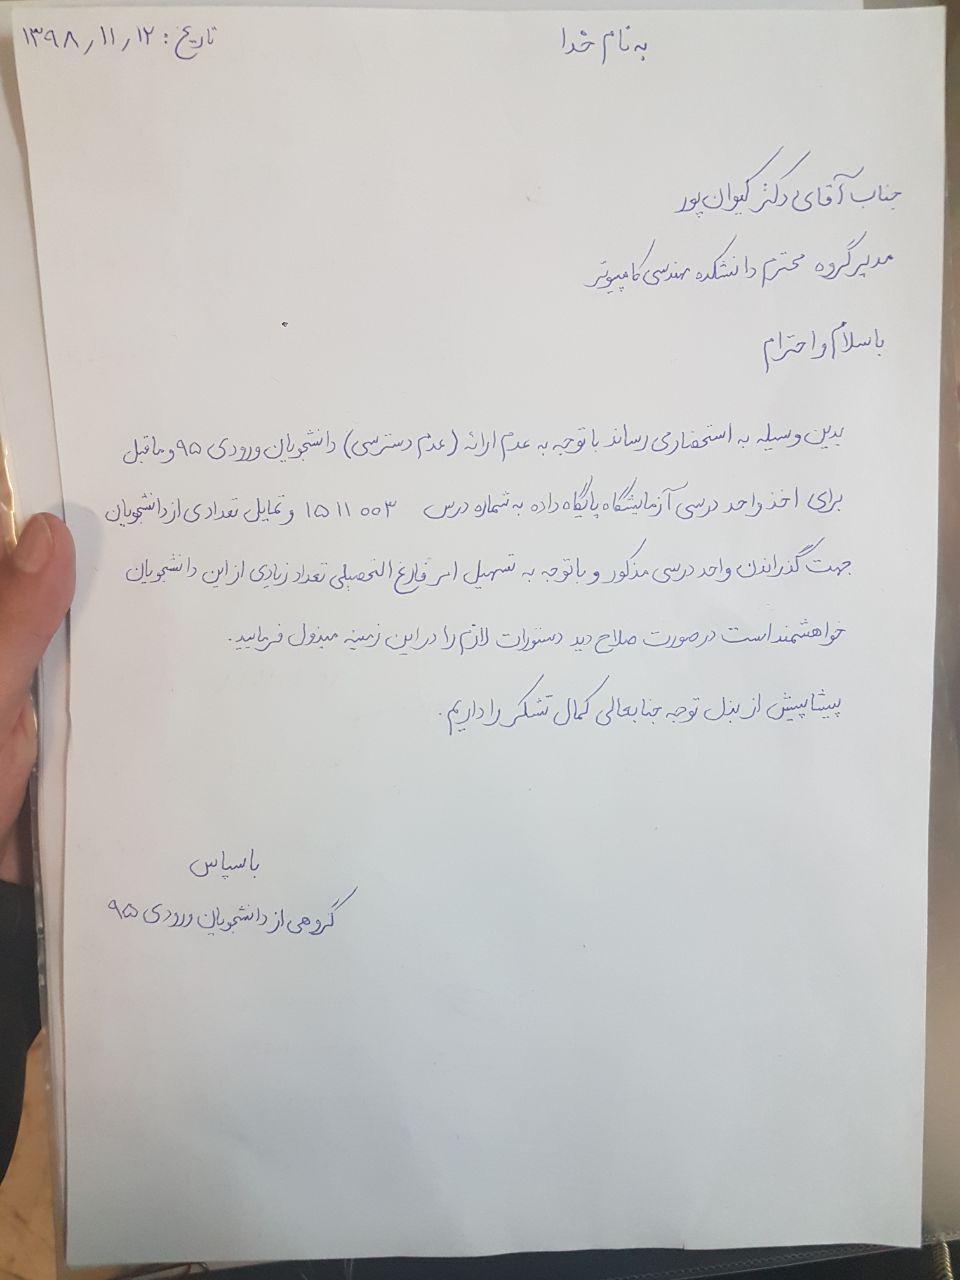 به نام خدا
تاریخ : ۱۳۹۸/۱۱/۱۲
جناب آقای دکتر کیوان پور
مدیر گروه محترم دانشکده مهندسی کامپیوتر
با سلام و احترام
بدین وسیله به استحضار می رساند با توجه به عدم ارائه (عدم دسترسی) دانشجویان ورودی ۹۵ و ماقبل
برای اخذ واحد درسی آزمایشگاه پایگاه داده به شماره درس ۱۵۱۱۰۰۳ و تمایل تعدادی از دانشجویان
جهت گذراندن واحد درسی مذکور و با توجه به تسهیل امر فارغ التحصیلی تعداد زیادی از این دانشجویان
خواهشمند است در صورت صلاح دید دستورات لازم را در این زمینه مبذول فرمایید.
پیشاپیش از بذل توجه جنابعالی کمال تشکر را داریم.
با سپاس
گروهی از دانشجویان ورودی ۹۵